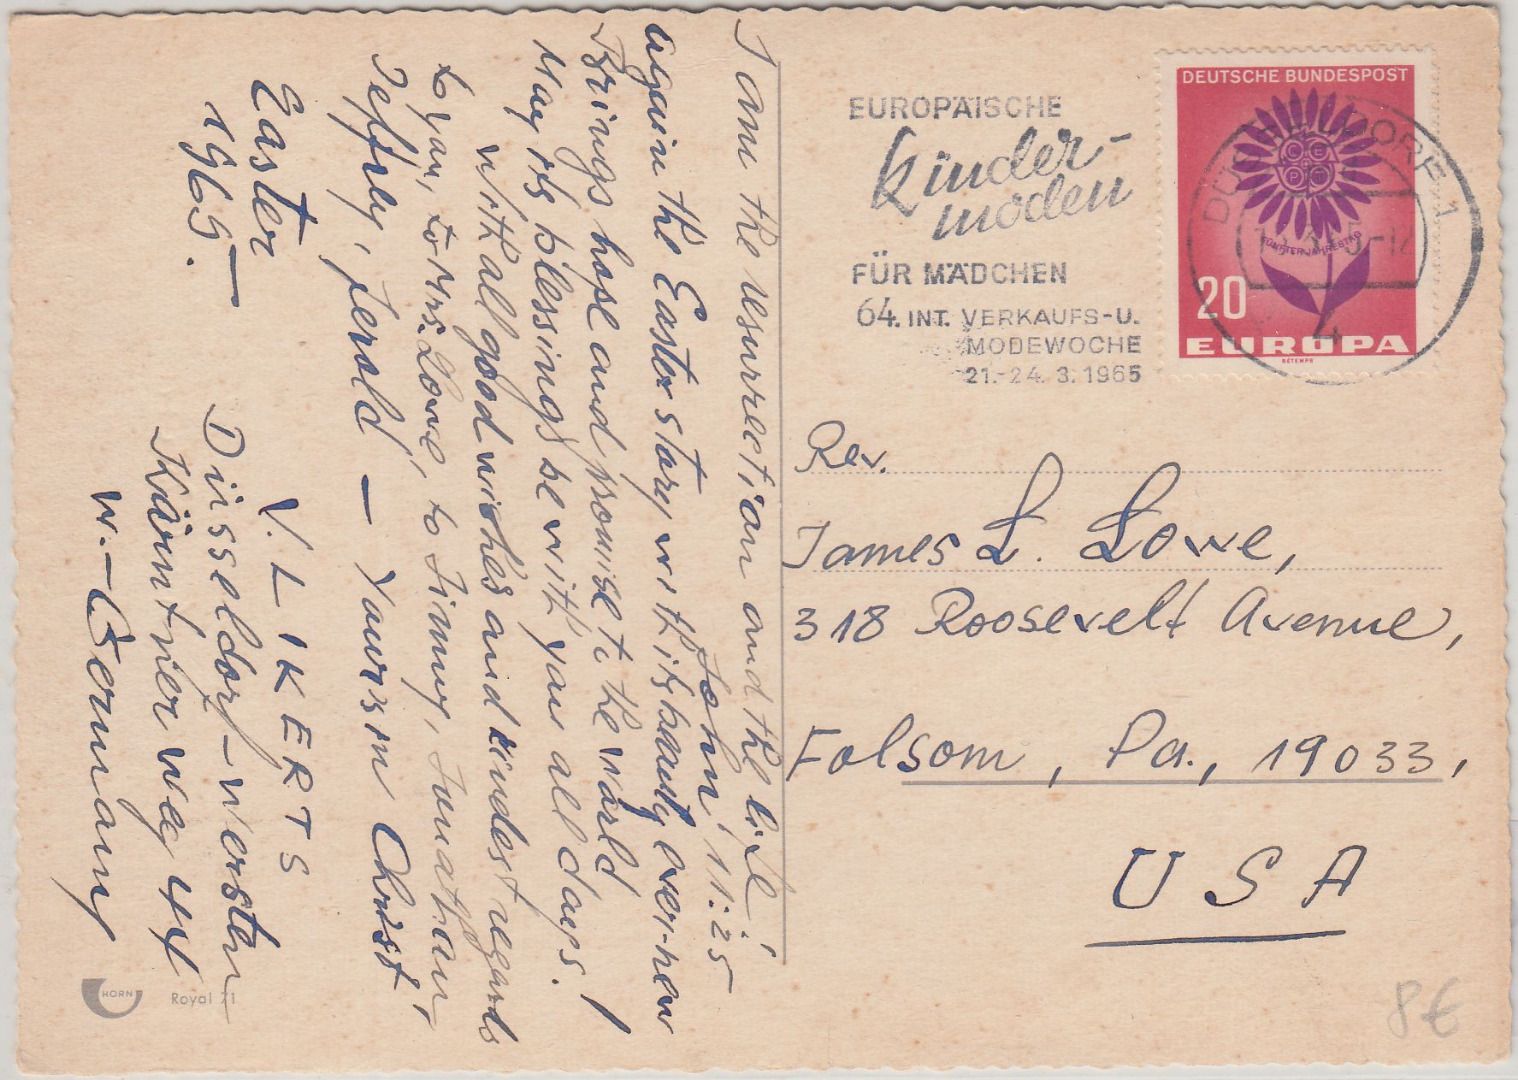 I am the resurrection and the life!
John 11:25
Again the Easter story with its beauty ever-new
Brings hope and promise to the world!
May its blessings be with you all days.
With all good wishes and kindest regards
to you, to Mrs. Lowe, to Jimmy, Jonathan,
Jeffrey, Jerold — Yours in Christ
Easter
1965.—
V. LIKERTS
Düsseldorf-Wersten
Kärntner Weg 44
W.-Germany
HORN
Royal 71
EUROPÄISCHE
Kinder-
moden
FÜR MÄDCHEN
64. INT. VERKAUFS-U.
MODEWOCHE
21.-24. 3. 1965
DEUTSCHE BUNDESPOST
CEPT
FÜNFTER JAHRESTAG
20
EUROPA
BÉTEMPS
DÜSSELDORF 1
Rev.
James L. Lowe,
318 Roosevelt Avenue,
Folsom, Pa., 19033,
USA
8€